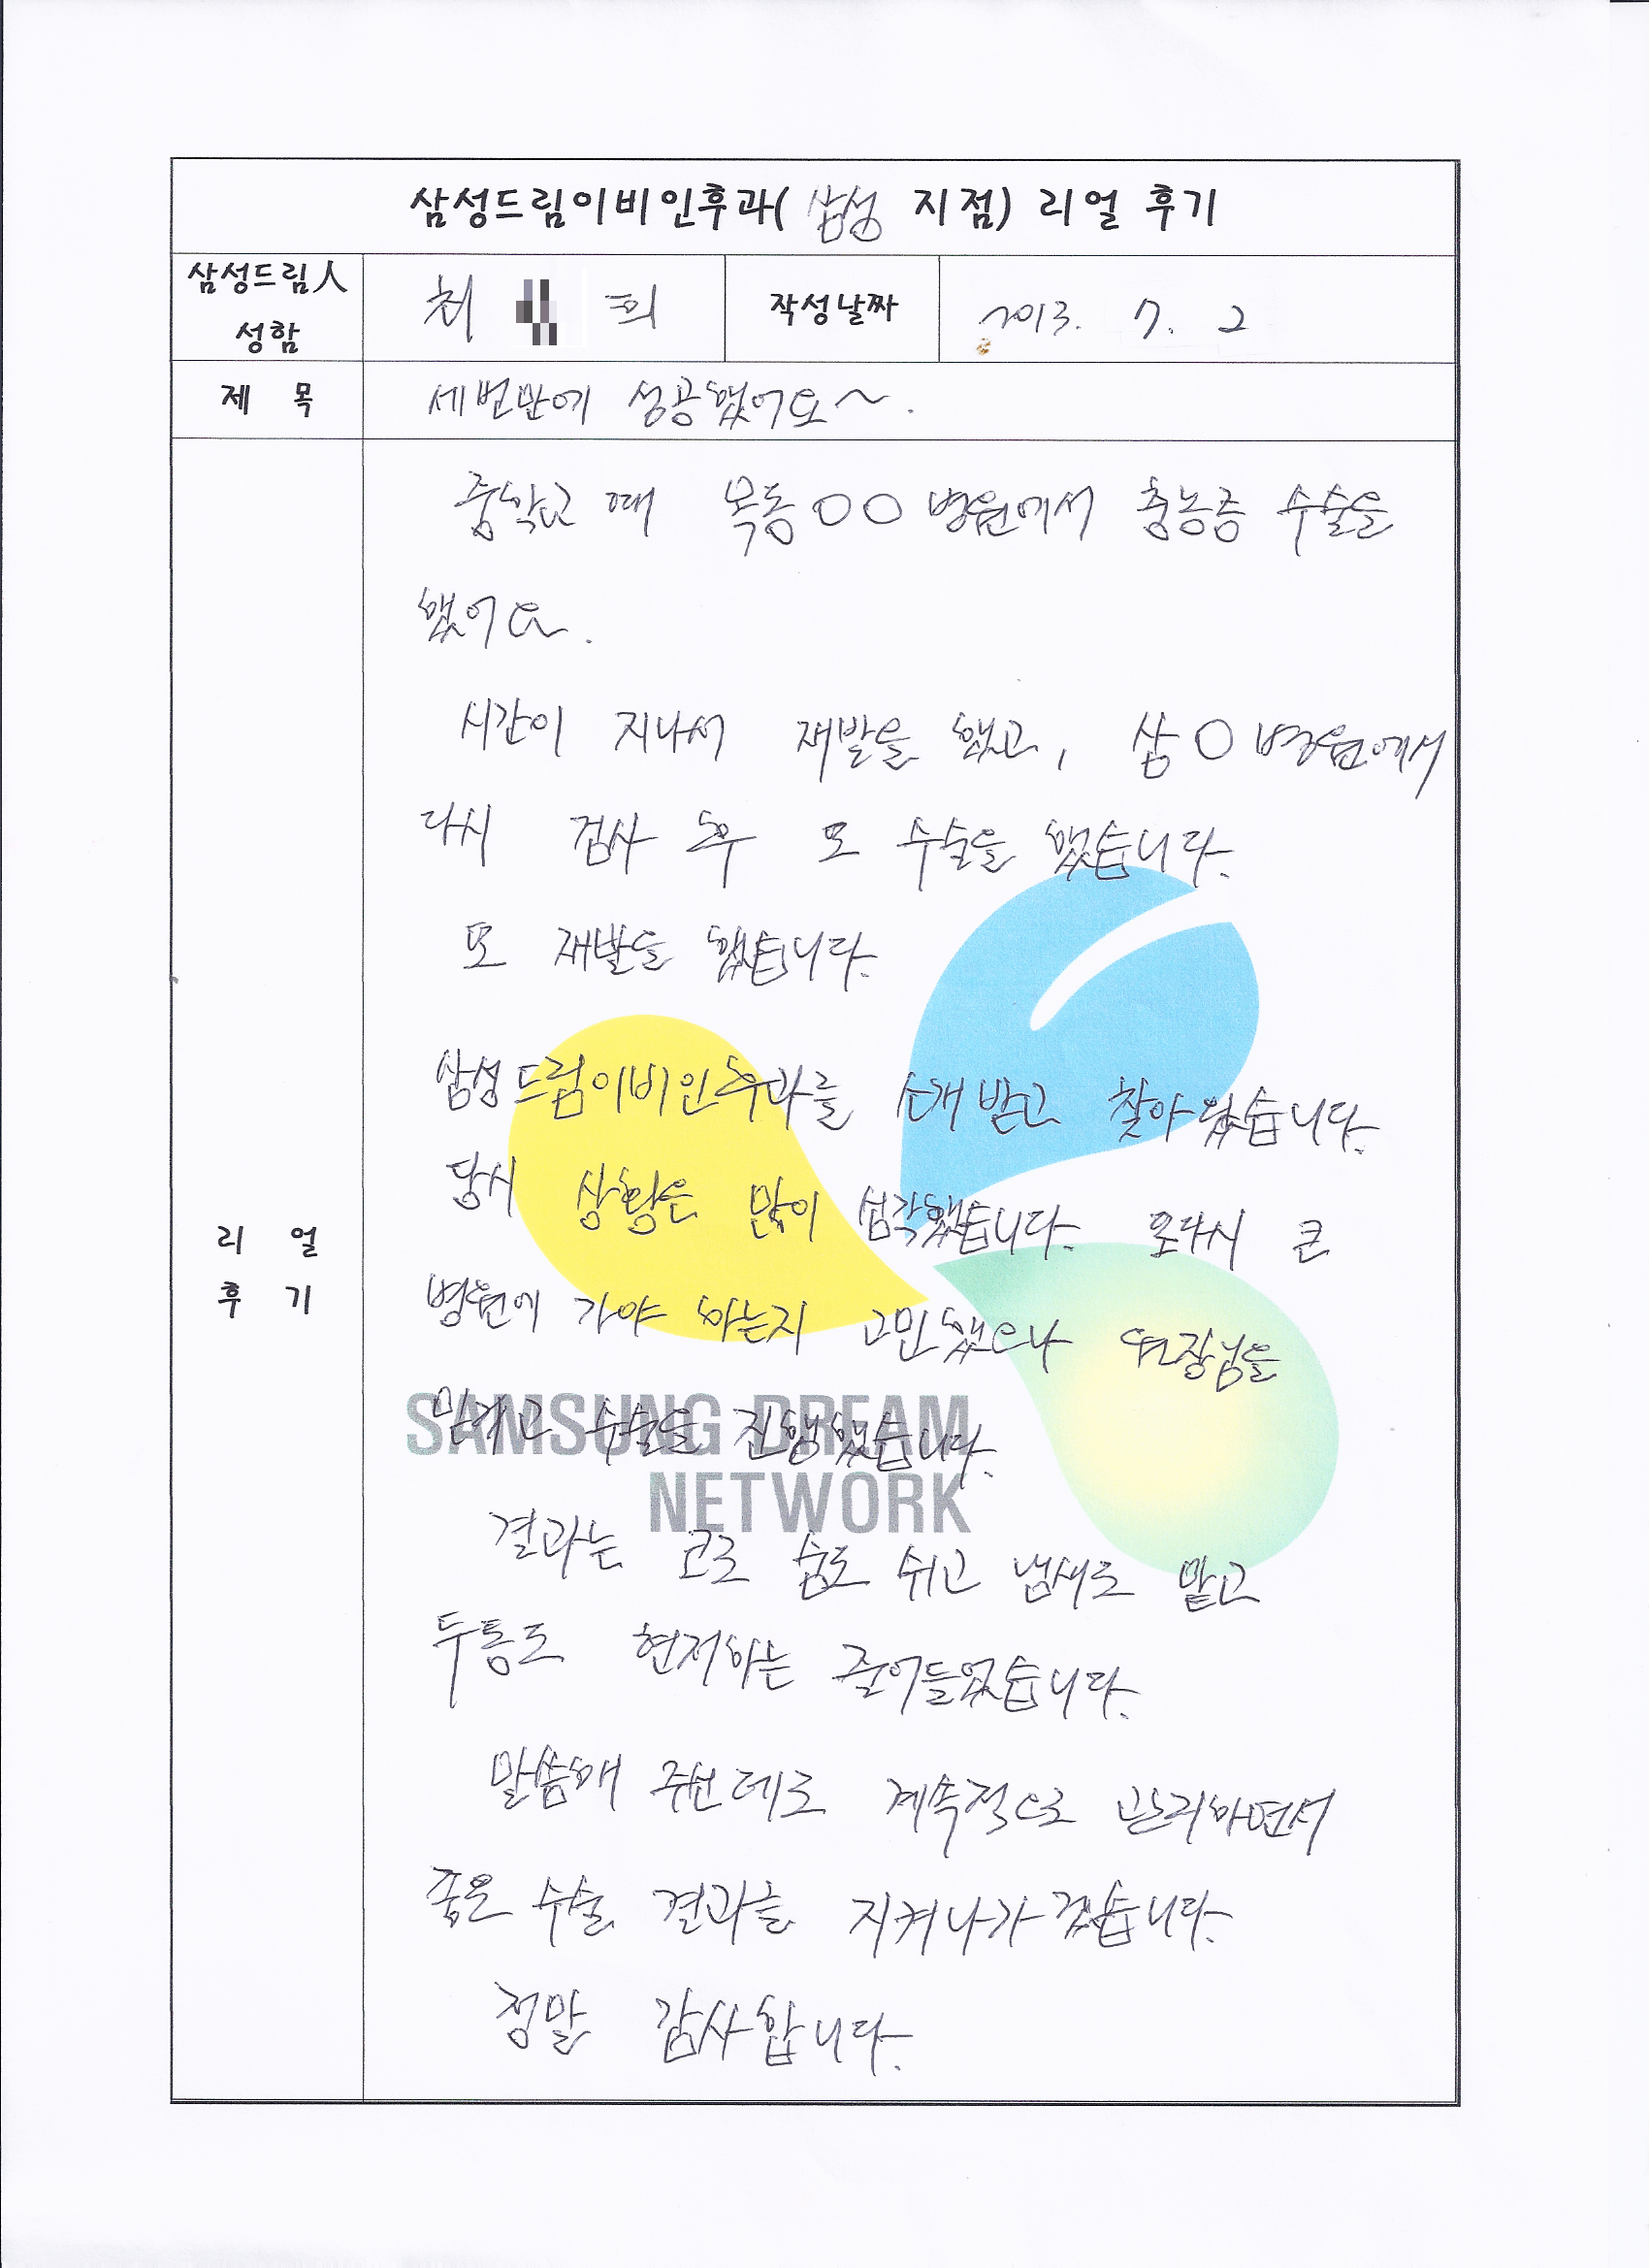 삼성드림이비인후과( 삼성 지점) 리얼 후기
삼성드림人
성함
최 희
작성날짜
2013. 7. 2
제 목
세번만에 성공했어요~.
리 얼
후 기
중학교 때 목동○○병원에서 축농증 수술을
했어요.
시간이 지나서 재발을 했고, 삼○병원에서
다시 검사 후 또 수술을 했습니다.
또 재발을 했습니다.
삼성드림이비인후과를 소개 받고 찾아왔습니다.
당시 상황은 많이 심각했습니다. 또다시 큰
병원에 가야 하는지 고민했으나 원장님을
믿고 수술을 진행했습니다.
SAMSUNG DREAM
NETWORK
결과는 코로 숨도 쉬고 냄새도 맡고
두통도 현저하는 줄어들었습니다.
말씀해 주신데로 계속적으로 관리하면서
좋은 수술 결과를 지켜나가겠습니다.
정말 감사합니다.